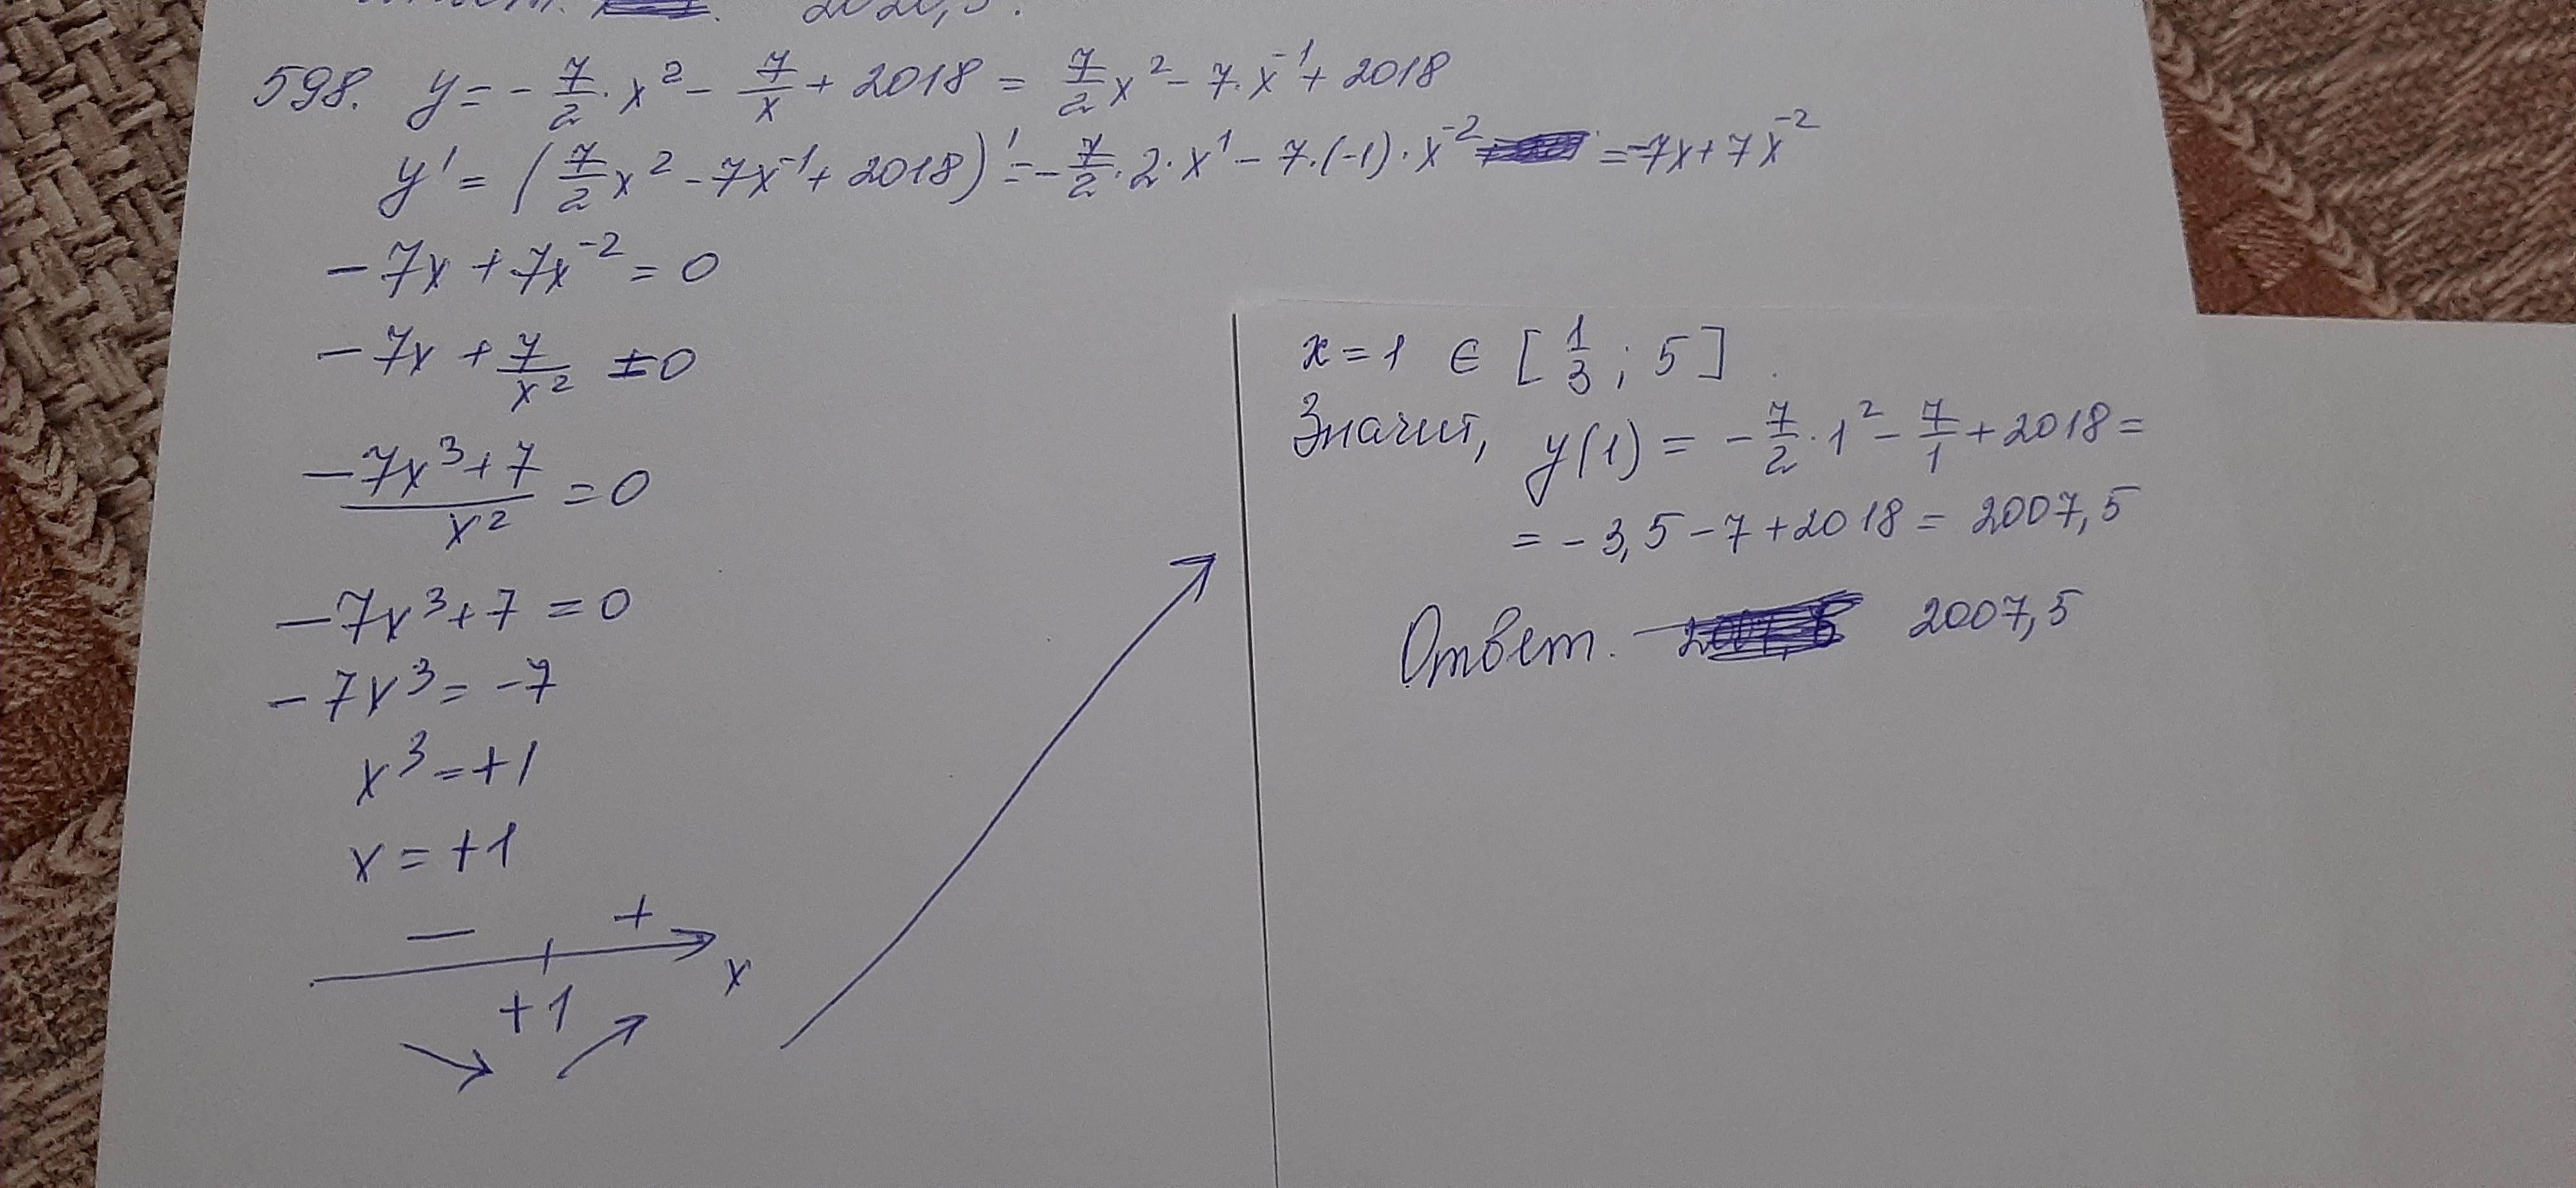 2020,5.
598. y = - 7/2 · x² - 7/x + 2018 = 7/2 x² - 7·x⁻¹ + 2018
y' = (7/2 x² - 7x⁻¹ + 2018)' = - 7/2 · 2 · x¹ - 7·(-1)·x⁻² = -7x + 7x⁻²
-7x + 7x⁻² = 0
-7x + 7/x² = 0
(-7x³ + 7)/x² = 0
-7x³ + 7 = 0
-7x³ = -7
x³ = +1
x = +1
— +
+1 x
x = 1 ∈ [1/3; 5]
Значит, y(1) = - 7/2 · 1² - 7/1 + 2018 =
= - 3,5 - 7 + 2018 = 2007,5
Ответ. 2007,5